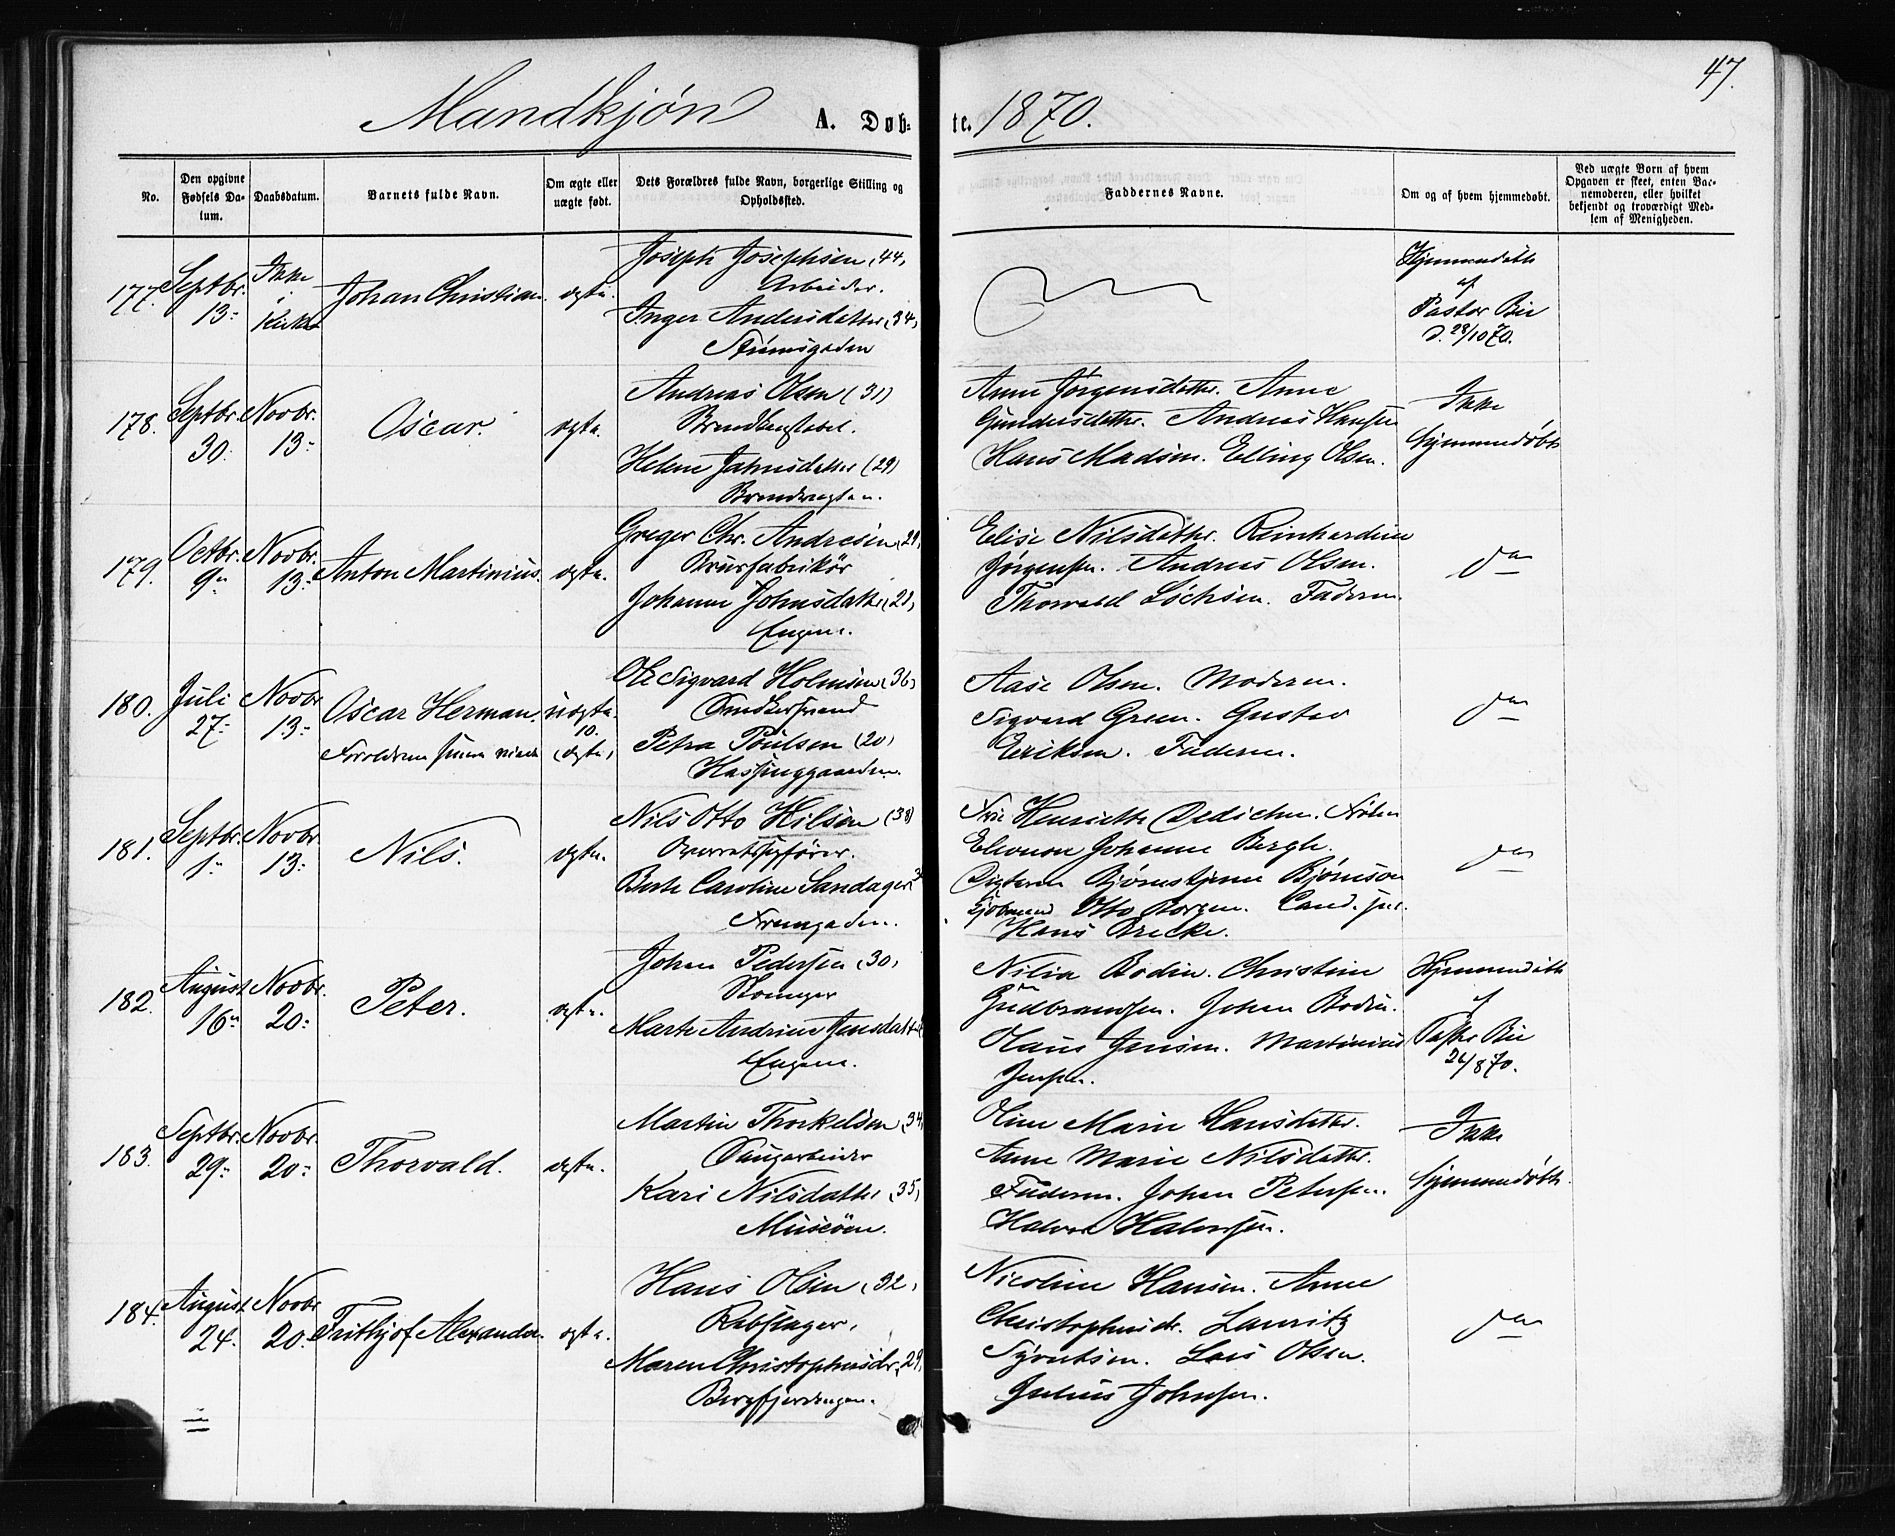 47.
Mandkjøn A. Døb-
te. 1870.
No.
Den opgivne
Fødsels Da-
tum.
Daabsdatum.
Barnets fulde Navn.
Om ægte eller
uægte født.
Dets Forældres fulde Navn, borgerlige Stilling og
Opholdssted.
Faddernes Navne.
Om og af hvem hjemmedøbt.
Ved uægte Børn af hvem
Opgaven er skeet, enten Bar-
nemoderen, eller hvilket
bekjendt og troværdigt Med-
lem af Menigheden.
177.
Septbr.
13
Ikke
i
Kirke
Johan Christian.
ægte.
Joseph Josephsen (44)
Arbeider.
Inger Andersdatter (34)
Hjemmedøbt
af
Pastor Bie
d. 28/10 70.
178.
Septbr.
30.
Novbr.
13
Oscar.
ægte.
Andreas Olsen (31)
Brandkonstabel.
Helene Jahnsdatter (29)
Brandvagten.
Anne Jørgensdatter. Anne
Gundersdatter. Andreas Hansen
Hans Madsen. Elling Olsen.
Ikke
hjemmedøbt
179.
Octbr.
9
Novbr.
13
Anton Martinius.
ægte.
Greger Chr. Andresen (29)
Johanne Johnsdatter (28)
Engene.
Elise Nilsdatter. Reinhardine
Jørgensen. Andreas Olsen.
Thorvald Lochsen. Faderen.
do
180.
Juli
27
Novbr
13
Oscar Herman.
Forældrene siden viede
uægte.
10.
(ægte)
Ole Sigvard Holmsen (36)
Smedkersvend
Petra Poulsen (20)
Aase Olsen. Moderen.
Sigvard Green. Gustav
Eriksen. Faderen.
do
181.
Septbr.
1
Novbr
13
Nils.
ægte.
Nils Otto Hilsen (38)
Overretssagfører.
Berte Caroline Sandager
Fru Henriette Dedichen. Frøken
Eleonore Johanne Bergh.
Digteren Bjørnstjerne Bjørnson
Otto Borgen. Cand. jur.
Hans Brecke.
do
182.
August
16
Novbr.
20
Peter.
ægte.
Johan Pedersen (30)
Marte Andrine Jensdatter
Engene.
Nilia Bodin. Christine
Gudbrandsen. Johan Bodin.
Hans Jensen. Martinius
Jensen.
Hjemmedøbt
af
Pastor Bie
26/8 70.
183.
Septbr.
29
Novbr.
20
Thorvald.
ægte.
Martin Thorkelsen (34)
Saugarbeider
Kari Nilsdatter (35)
Museøen.
Oline Marie Hansdatter.
Anne Marie Nilsdatter.
Faderen. Johan Petersen.
Halvor Halvorsen.
Ikke
hjemmedøbt.
184.
August
24.
Novbr
20
Frithjof Alexander.
ægte.
Hans Olsen (32)
Rebslager.
Maren Christophersdr. (29)
Bergfjerdingen.
Nicoline Hansen. Anne
Christophersdr. Lauritz
Syvertsen. Lars Olsen.
Julius Johnsen.
do